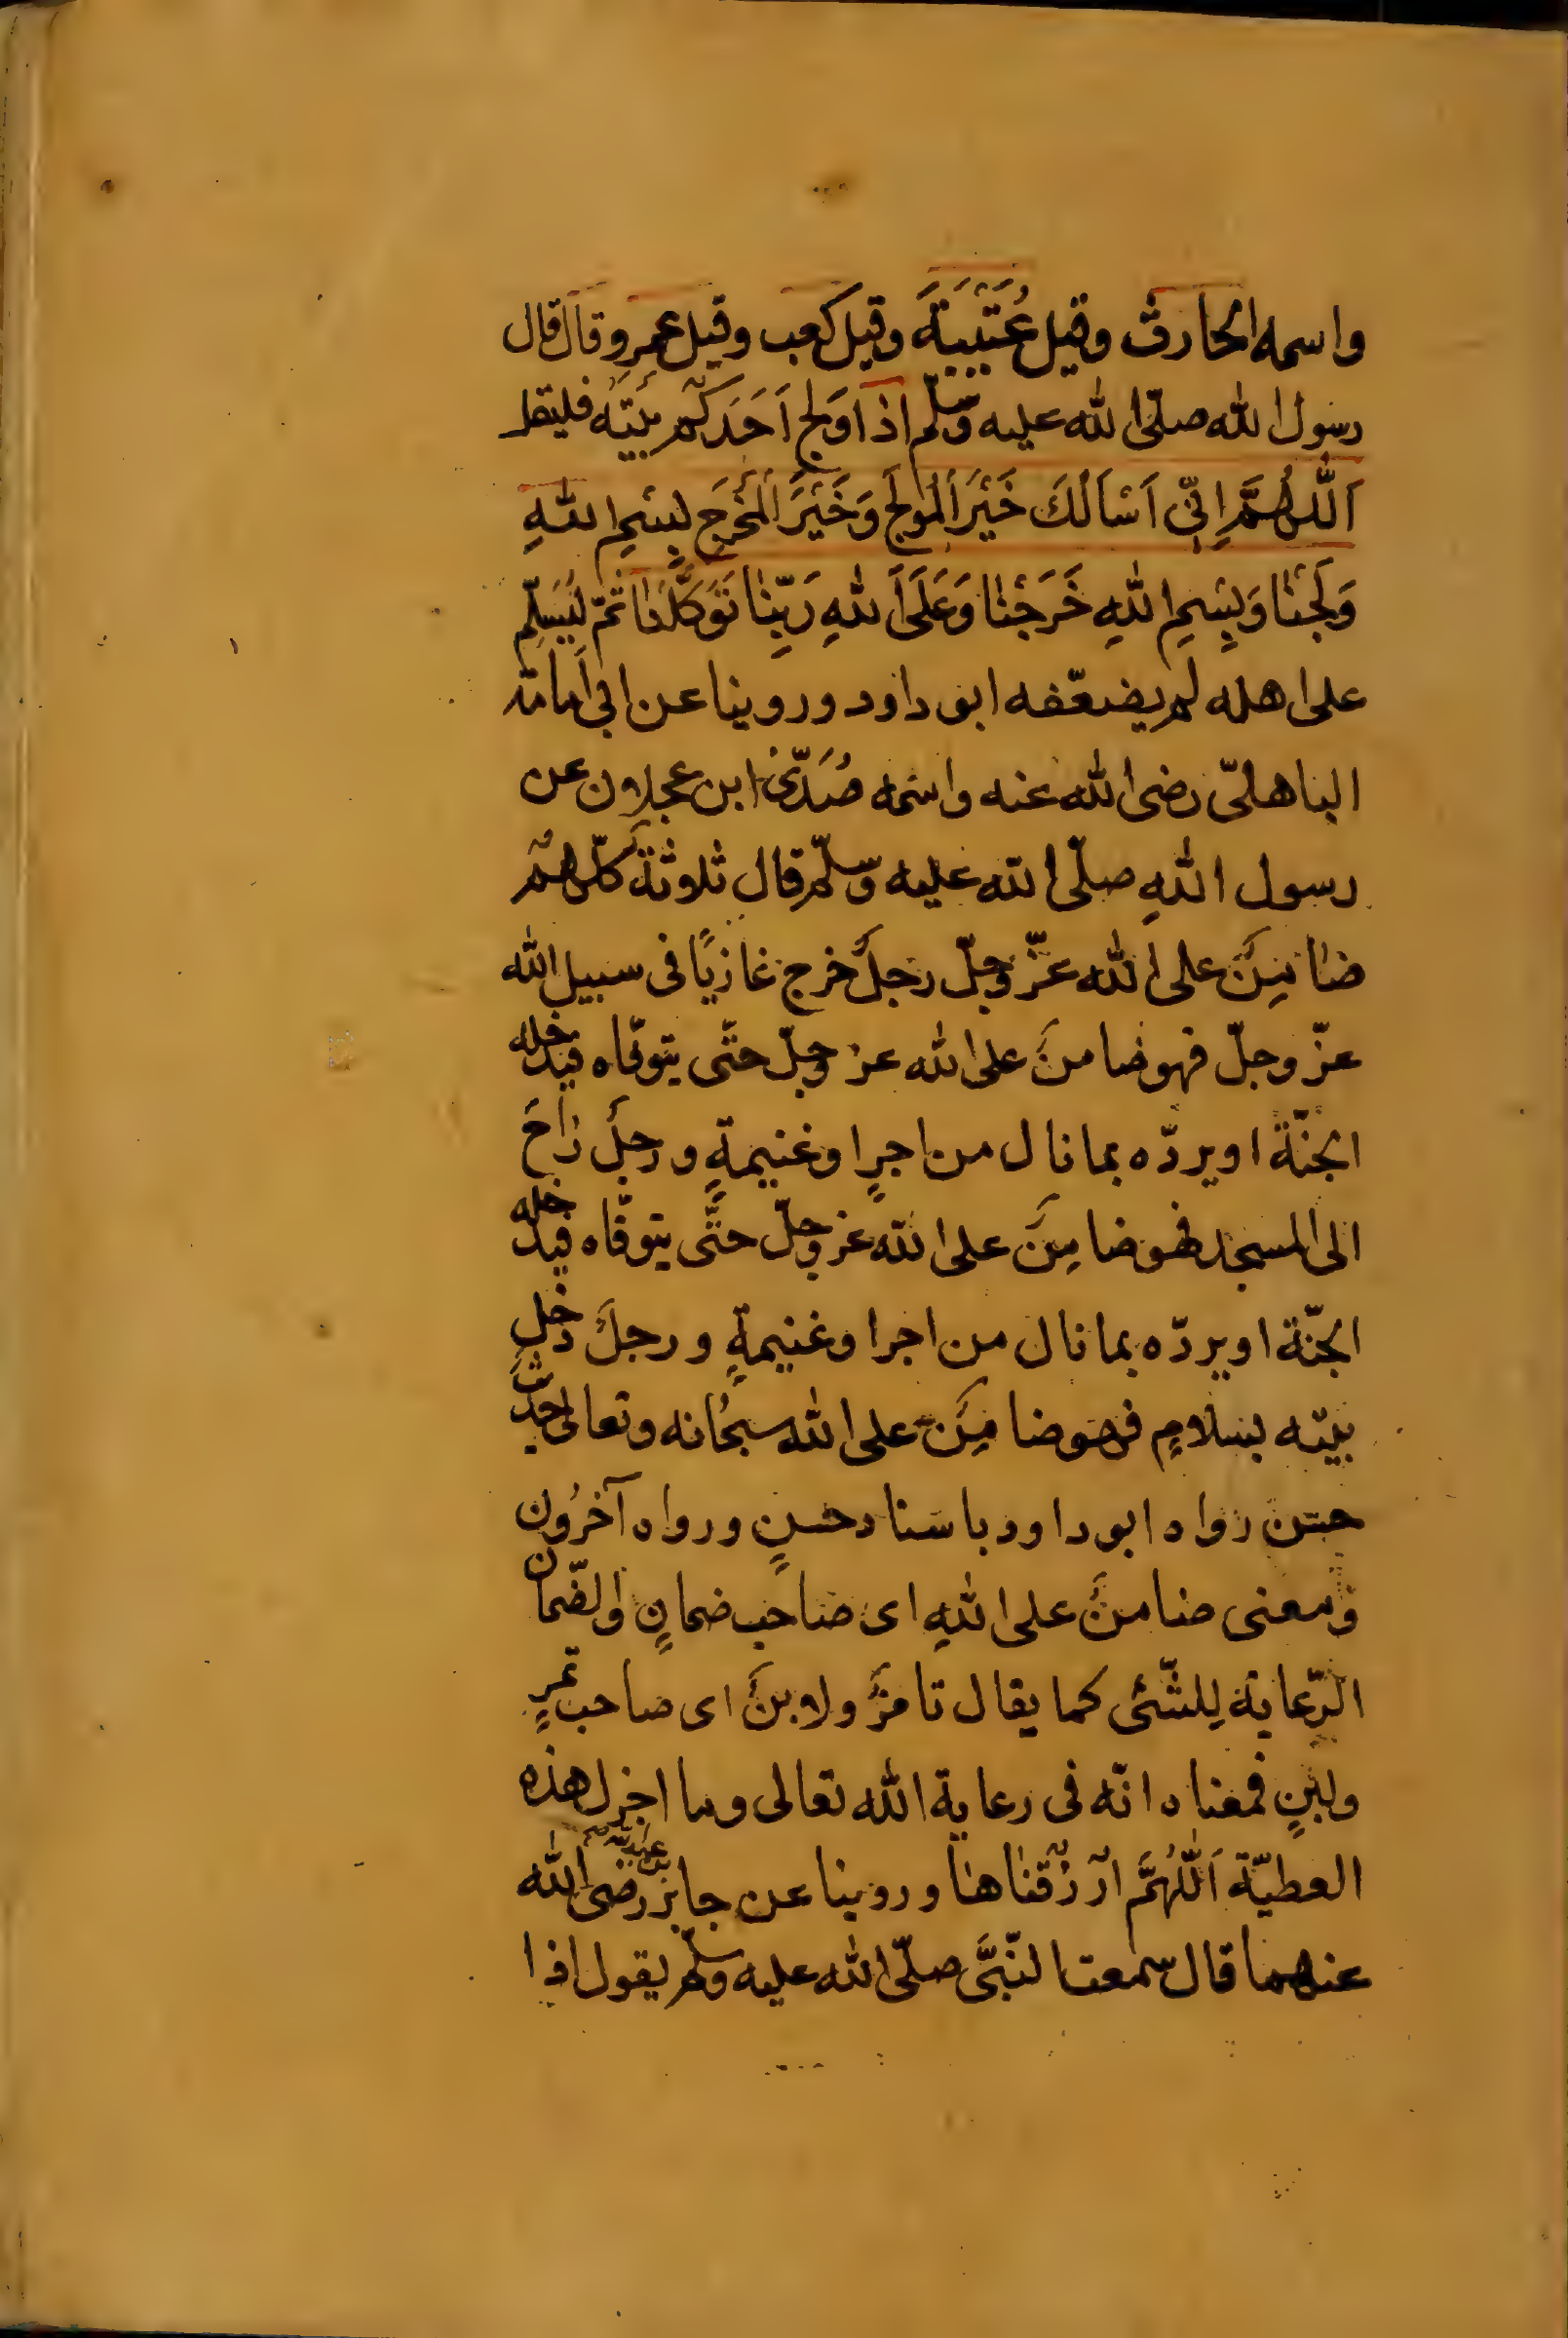 واسمه الحارث وقيل عُتَيْبَةَ وقيل كعب وقيل عمرو قال قال
رسول الله صلّى الله عليه وسلّم اذا وَلج اَحَدَكم بَيْتَه فليقل
اَللّهُمَّ اِنّي اَسْاَلُكَ خَيْرَ اَلْمَوْلَجِ وَخَيْرَ اَلْمَخْرَجِ بِسْمِ اللهِ
وَلَجْنٰا وَبِسْمِ اللهِ خَرَجْنٰا وَعَلَى اَللهِ رَبِّنٰا تَوَكَّلْنٰا ثُمّ لْيُسَلِّم
على اهله لم يضعّفه ابو داود وروينا عن ابي اُمامة
الباهليّ رضى الله عنه واسمه صُدَىّ ابن عجلان عن
رسول اللهِ صلّى الله عليه وسلّم قال ثلاثة كلّهم
ضامِنٌ على الله عزّ وجلّ رجلٌ خرج غازيًا فى سبيل الله
عزّ وجلّ فهو ضامنٌ على الله عز وجلّ حتّى يتوفّاه فيدخله
الجنّة او يردّه بما نال من اجرٍ او غنيمةٍ ورجلٌ راحَ
الى المسجد فهو ضامِنٌ على الله عز وجلّ حتّى يتوفّاه فيدخله
الجنّة او يردّه بما نال من اجر او غنيمةٍ ورجلٌ دخل
بيته بسلامٍ فهو ضامِنٌ على الله سبحُانه وتعالى حديث
حسن رواه ابو داود باسناد حسنٍ ورواه آخرُون
ومعنى ضامنٌ على اللهِ اى صاحب ضمانٍ والضّمان
الرّعاية لِلشّئى كما يقال تامرٌ ولابنٌ اى صاحب تمرٍ
ولبنٍ فمعناه انّه فى رعاية الله تعالى وما اجزل هذه
العطيّة اَللّهُمَّ ارْزُقْنٰاهٰا وروينا عن جابر بن عبد الله رضى الله
عنهما قال سمعت النّبىَّ صلّى الله عليه وسلّم يقول اذا